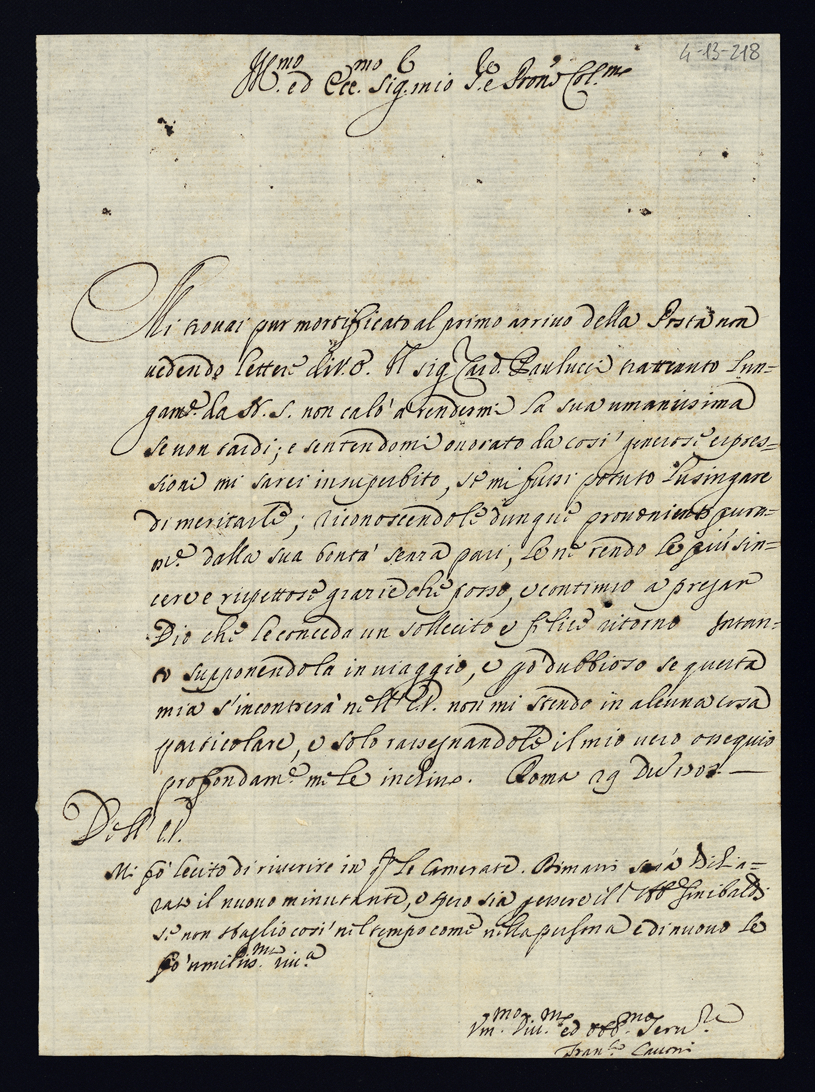 4-13-218
Ill.mo ed Ecc.mo Sig. mio Sig.e Pron.e Col.mo
Mi trovai pur mortificato al primo arrivo della Posta non
vedendo lettere di V.E. Il Sig. Card. Paulucci trattenuto lun=
gam.e da N. S. non calò a rendermi la sua umanissima
se non tardi; e sentendomi onorato da così generose espres=
sioni mi sarei insuperbito, se mi fussi potuto lusingare
di meritarle; riconoscendole dunque provenienti pura=
m.e dalla sua bontà senza pari, le ne rendo le più sin=
cere e rispettose grazie che posso, e continuo a pregar
Dio che le conceda un sollecito e felice ritorno Intan=
to supponendola in viaggio, e però dubbioso se questa
mia s'incontrerà nell' E.V. non mi stendo in alcuna cosa
particolare, e solo rassegnandole il mio vero ossequio
profondam.e me le inchino. Roma 29
Dell' E.V.
Mi fò lecito di riverire in le Camerate. Rimani sarà Dichia=
rato il nuovo minutante, e spero sia pessere il Sinibaldi
se non sbaglio così nel tempo come nella persona e di nuovo le
fò umiliss.ma riv.a
Um.mo Div.mo ed Obb.mo Serv.re
Fran.co